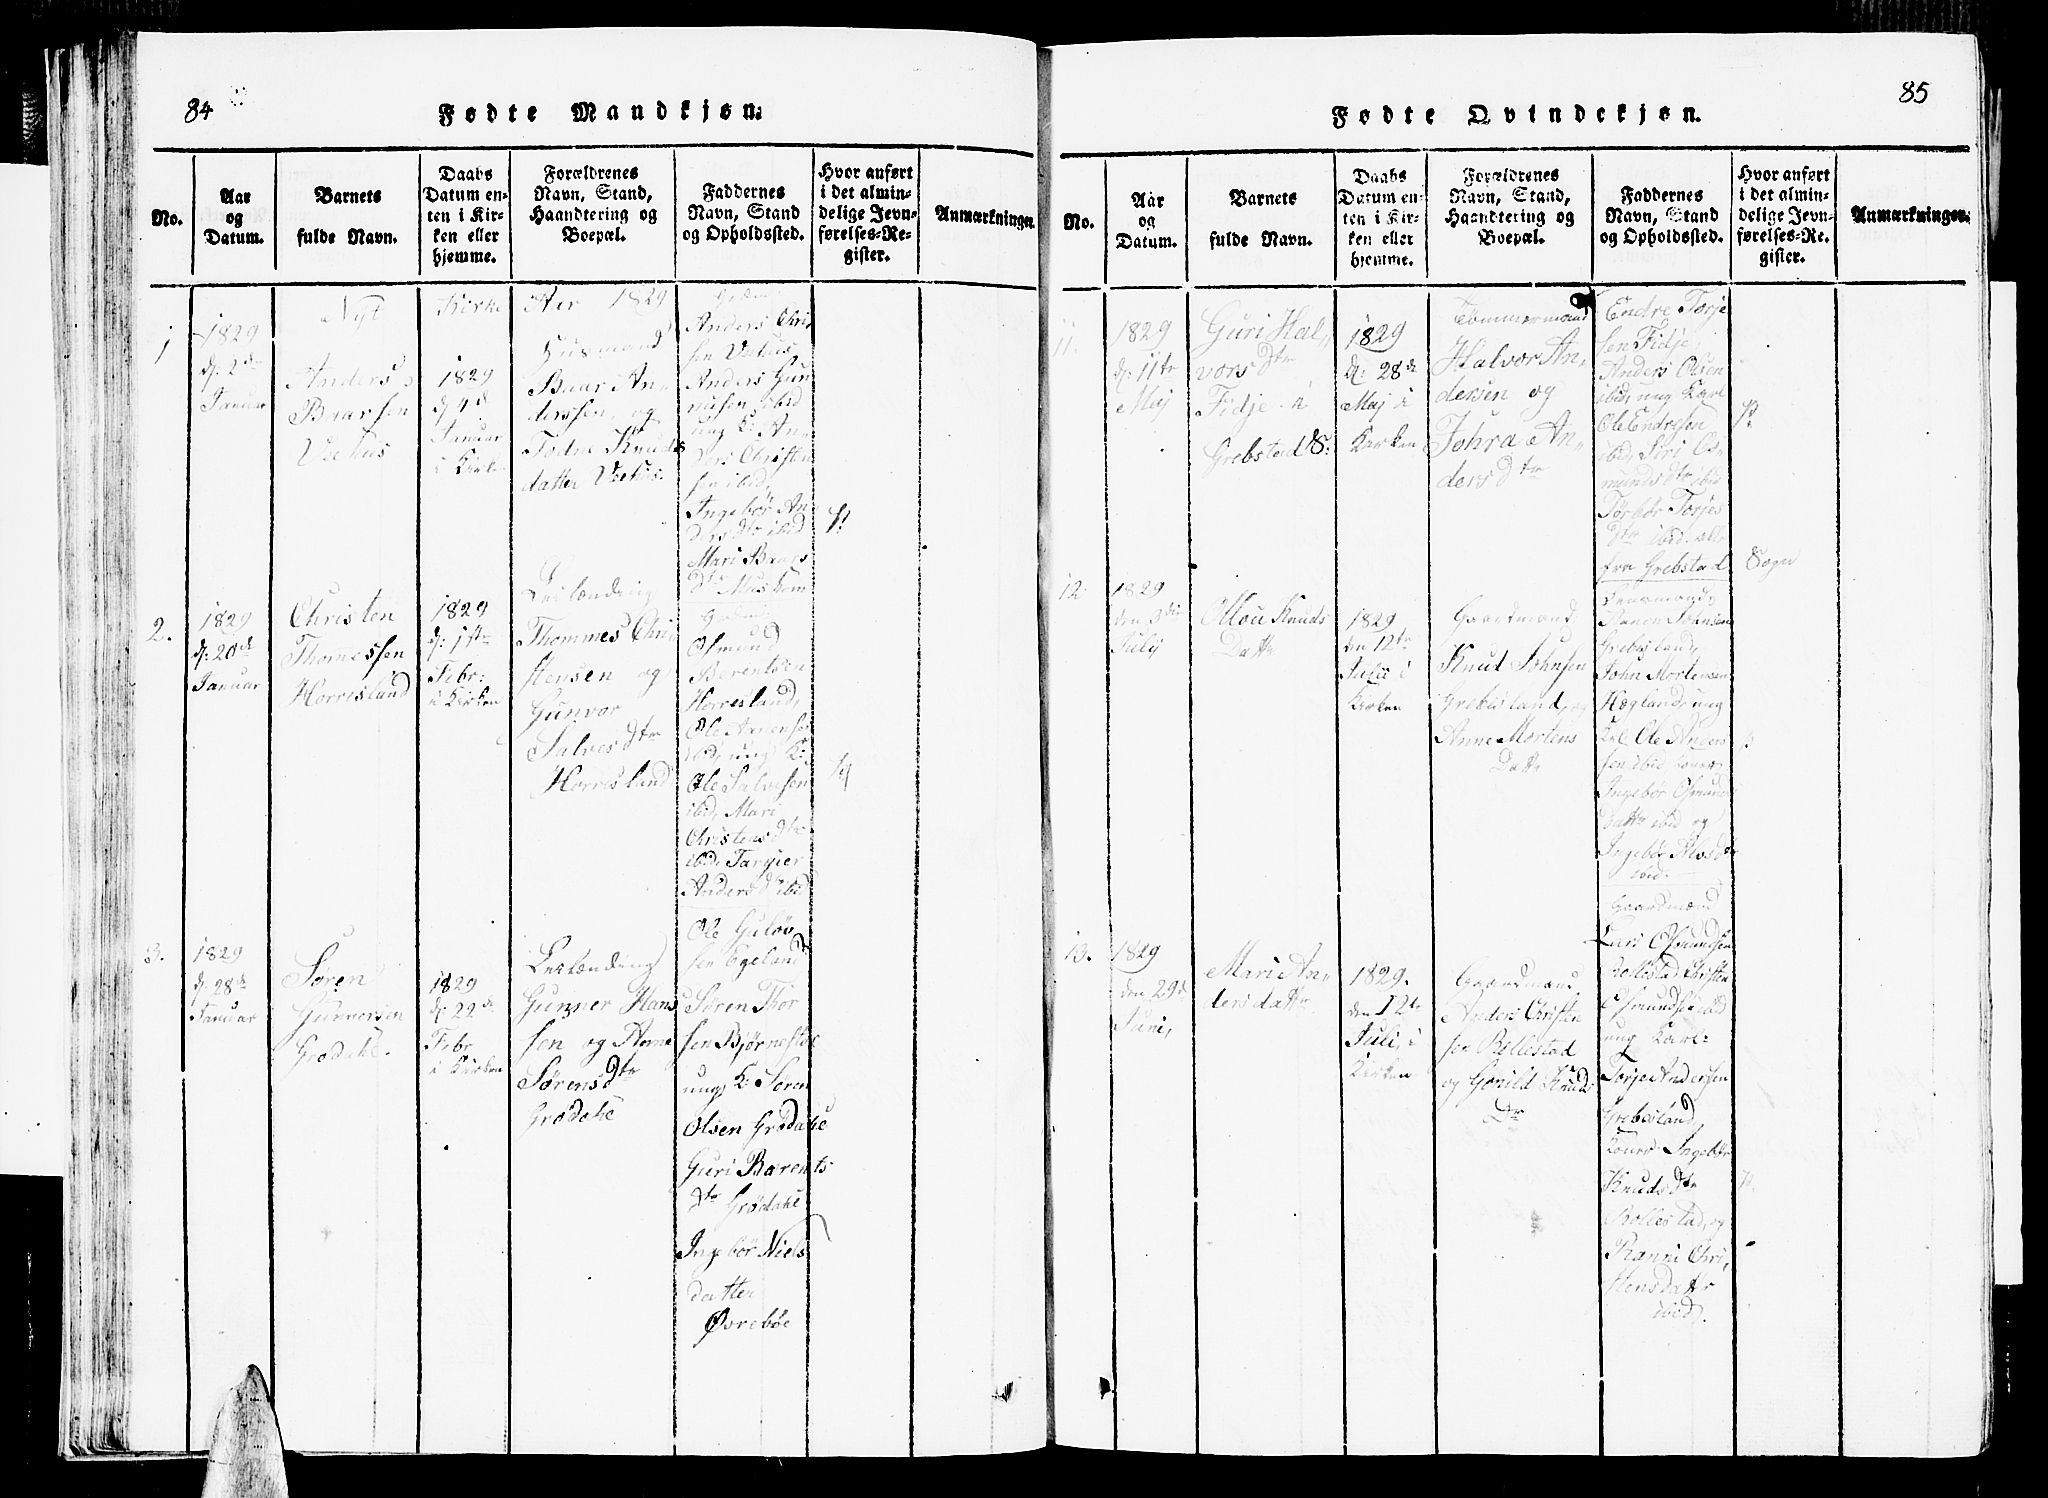 84
Fødte Mandkjøn.
No.
Aar
og
Datum.
Barnets
fulde Navn.
Daabs
Datum en-
ten i Kir-
ken eller
hjemme.
Forældrenes
Navn, Stand,
Haandtering og
Boepæl.
Faddernes
Navn, Stand
og Opholdssted.
Hvor anført
i det almin-
delige Jevn-
førelses-Re-
gister.
Anmærkninger.
Nyt Kirke Aar 1829
1
1829
d: 2de
Januar
Anders
Baarsen
1829
d 4de
Januar
i Kirk
Husmand
Baar An-
derssen og
Todne Knuds
datter
Anders Chri
sen
Anders Gun
nusen, ibid
ung K: An-
ders Christen
sen ibid,
Ingebør An
ders dtr ibid
Mari Baars
dtr
2.
1829
d: 20de
Januar
Christen
Thomessen
Horrisland
1829
d: 1ste
Febr:
i Kirken
Leilænding
Thommes Chri
stensen og
Gunvor
Salves dtr
Horrisland
Osmund
Berentsen
Horrisland,
Ole
ibid, ung K:
Ole Salvesen
ibid, Mari
Christens dtr
ibid, Targier
Anders dtr ibid
3.
1829
d: 28de
Januar
Søren
Gunnersen
Grødahe.
1829
d: 22de
Febr
i Kirken
Leilænding
Gunner Hans
sen og Anne
Sørens dtr
Grødahe
Ole Guløv
sen Egeland
Søren Thor
sen Bjørnestøe
ung K: Søren
Olsen Grødahe
Guri Barents
dtr Grødahe
Ingebør Niels
datter
Øvrebøe
85
Fødte Qvindekjøn.
No.
Aar
og
Datum.
Barnets
fulde Navn.
Daabs
Datum en-
ten i Kir-
ken eller
hjemme.
Forældrenes
Navn, Stand,
Haandtering og
Boepæl.
Faddernes
Navn, Stand
og Opholdssted.
Hvor anført
i det almin-
delige Jevn-
førelses-Re-
gister.
Anmærkninger.
11.
1829
d: 11te
Maj
Guri Hal,,
vors dtr
Fidje i
Grebstad S:
1829
d: 28de
Maj i
Kirken
Tømmermand
Halvor An,
dersen og
Johra An,
ders dtr
Endre Torje
sen Fidje,
Anders Olsen
ibid, ung Karl
Ole Endresen
ibid, Siri Os,
munds dtr ibid
Torbør Torjes
dtr ibid. alle
fra Grebstad Sogn
12
1829
den 3die
July
Ollou Knuds
Dattr
1829
den 12te
Julii i
Kirken
Gaardmand
Knud Johnsen
Grebisland, og
Anne Mortens
Dattr
Johnsen
Grebisland,
John Mortensen
Hægland, ung
Karl Ole Anders
sen ibid, koner
Ingebør Osmunds
Dattr ibid og
Ingebør Alvs dtr
ibid.
13.
1829
den 29de
Juni,
Mari An,,
dersdattr
1829.
den 12te
Juli, i
Kirken
Gaardmand
Anders Christen
sen Røllestad
og Gonild Knuds
Dr
Gaardmænd
Lars Osmundsen
Røllestad Christen
Osmundsen ibid
ung Karl:
Torje Andersen
Grebisland,
Koner Ingebør
Knuds dtr
Rollestad, og
Ranni Chri,
stensdattr
ibid.